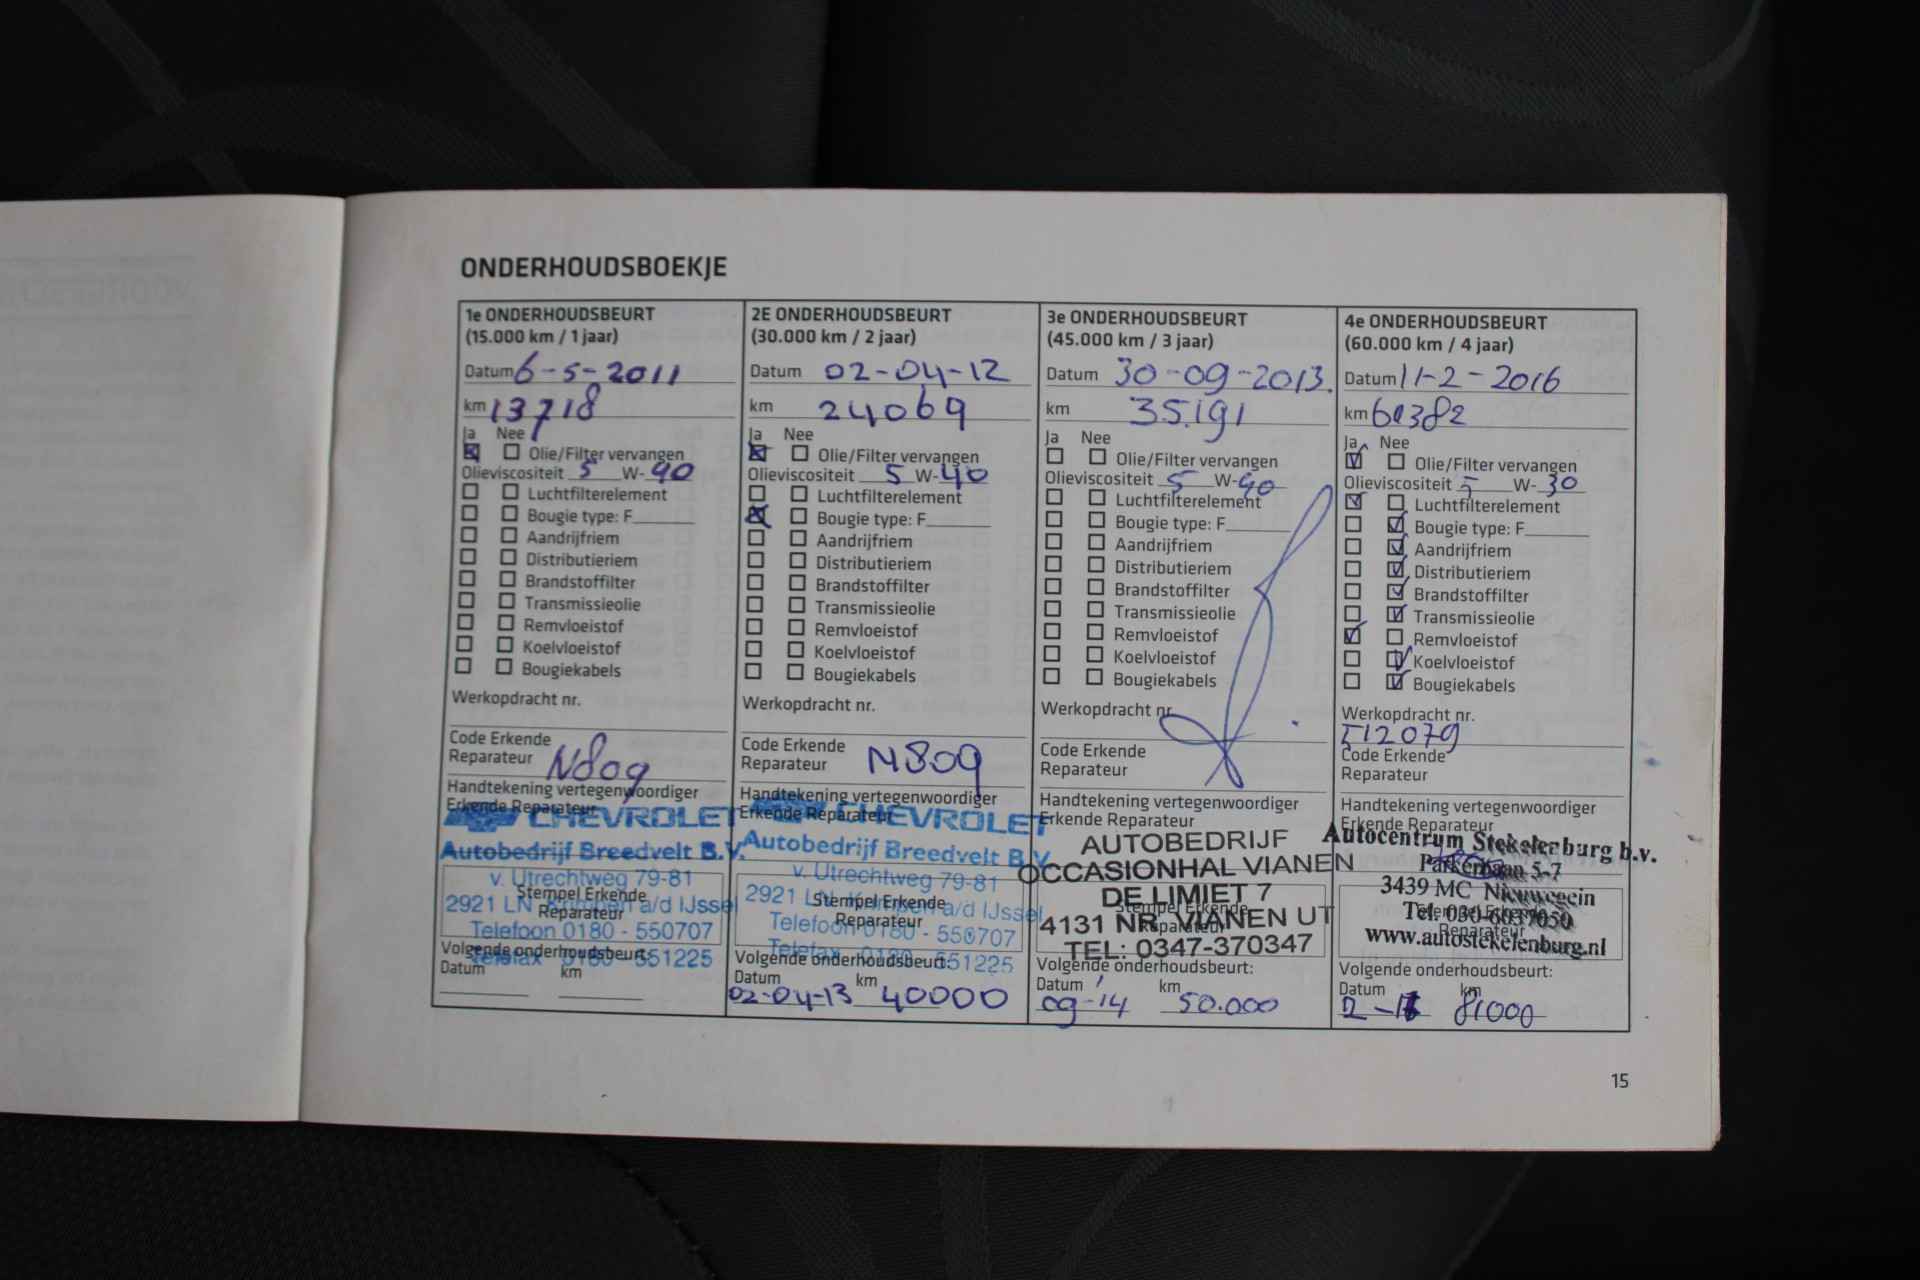 ONDERHOUDSBOEKJE
1e ONDERHOUDSBEURT
(15.000 km / 1 jaar)
Datum 6-5-2011
km 13718
Ja Nee
Olie/Filter vervangen
Olieviscositeit 5 W-40
Luchtfilterelement
Bougie type: F
Aandrijfriem
Distributieriem
Brandstoffilter
Transmissieolie
Remvloeistof
Koelvloeistof
Bougiekabels
Werkopdracht nr.
Code Erkende
Reparateur N809
Handtekening vertegenwoordiger
Erkende Reparateur
CHEVROLET
Autobedrijf Breedvelt B.V.
v. Utrechtweg 79-81
Stempel Erkende
2921 LN Krimpen a/d IJssel
Reparateur
Telefoon 0180 - 550707
Volgende onderhoudsbeurt:
Telefax 0180 - 551225
Datum km
2E ONDERHOUDSBEURT
(30.000 km / 2 jaar)
Datum 02-04-12
km 24069
Ja Nee
Olie/Filter vervangen
Olieviscositeit 5 W-40
Luchtfilterelement
Bougie type: F
Aandrijfriem
Distributieriem
Brandstoffilter
Transmissieolie
Remvloeistof
Koelvloeistof
Bougiekabels
Werkopdracht nr.
Code Erkende
Reparateur N809
Handtekening vertegenwoordiger
Erkende Reparateur
CHEVROLET
Autobedrijf Breedvelt B.V.
v. Utrechtweg 79-81
Stempel Erkende
2921 LN Krimpen a/d IJssel
Reparateur
Telefoon 0180 - 550707
Telefax 0180 - 551225
Volgende onderhoudsbeurt:
Datum km
02-04-13 40000
3e ONDERHOUDSBEURT
(45.000 km / 3 jaar)
Datum 30-09-2013.
km 35.191
Ja Nee
Olie/Filter vervangen
Olieviscositeit 5 W-40
Luchtfilterelement
Bougie type: F
Aandrijfriem
Distributieriem
Brandstoffilter
Transmissieolie
Remvloeistof
Koelvloeistof
Bougiekabels
Werkopdracht nr.
Code Erkende
Reparateur
Handtekening vertegenwoordiger
Erkende Reparateur
AUTOBEDRIJF
OCCASIONHAL VIANEN
DE LIMIET 7
Stempel Erkende
4131 NR VIANEN UT
Reparateur
TEL: 0347-370347
Volgende onderhoudsbeurt:
Datum km
09-'14 50.000
4e ONDERHOUDSBEURT
(60.000 km / 4 jaar)
Datum 11-2-2016
km
Ja Nee
Olie/Filter vervangen
Olieviscositeit 5 W-30
Luchtfilterelement
Bougie type: F
Aandrijfriem
Distributieriem
Brandstoffilter
Transmissieolie
Remvloeistof
Koelvloeistof
Bougiekabels
Werkopdracht nr.
Code Erkende
Reparateur
Handtekening vertegenwoordiger
Erkende Reparateur
Autocentrum Stekelenburg b.v.
Parkerbaan 5-7
3439 MC Nieuwegein
Tel: 030-6037050
Stempel Erkende
Reparateur
www.autostekelenburg.nl
Volgende onderhoudsbeurt:
Datum km
81000
15